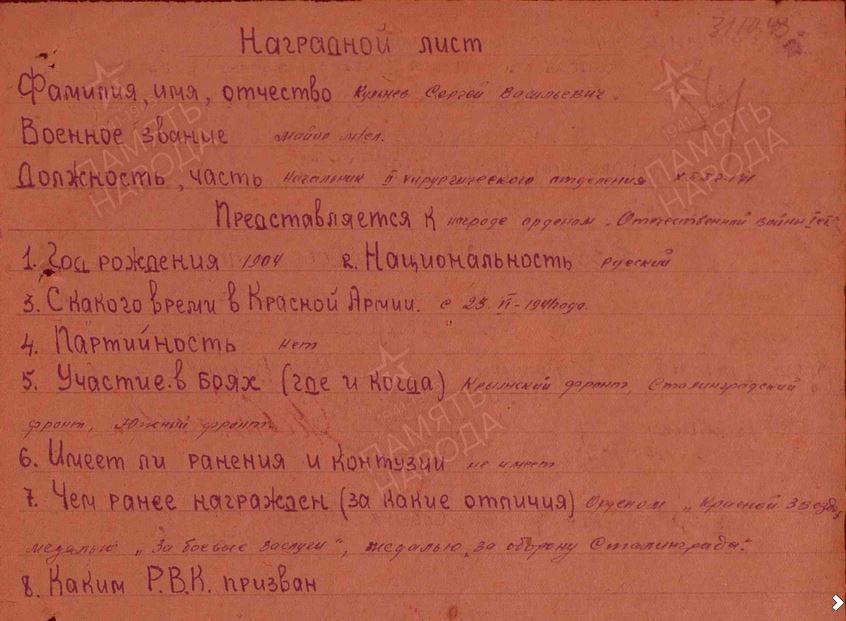 31.10.43
Наградной лист
Фамилия, имя, отчество Сергей Васильевич.
Военное звание майор м/сл.
Должность, часть Начальник II хирургического отделения
Представляется к награде орденом „Отечественной войны II ст."
1. Год рождения 1904 2. Национальность русский
3. С какого времени в Красной Армии. с 23. VI - 1941 года.
4. Партийность нет
5. Участие в боях (где и когда) Крымский фронт, Сталинградский
фронт, Южный фронт.
6. Имеет ли ранения и контузии не имеет
7. Чем ранее награжден (за какие отличия) Орденом „Красной Звезды,
медалью „За боевые заслуги", медалью „за оборону Сталинграда".
8. Каким Р.В.К. призван
ПАМЯТЬ НАРОДА
ПАМЯТЬ НАРОДА
ПАМЯТЬ НАРОДА